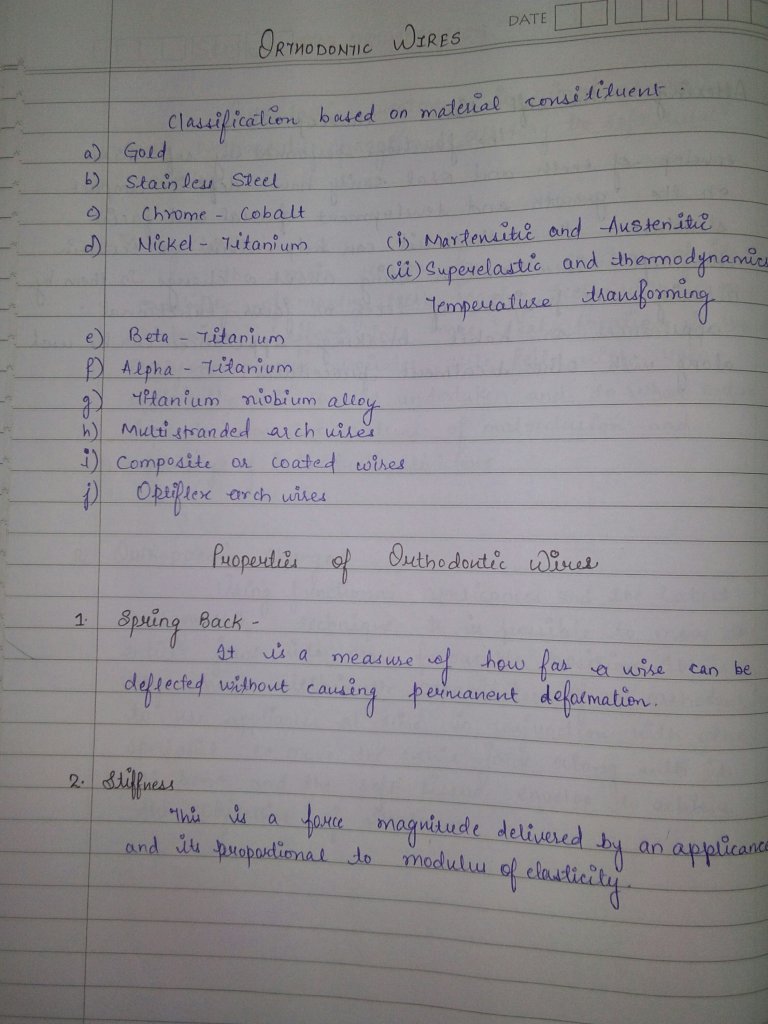 DATE
ORTHODONTIC WIRES
Classification based on material constituent.
a) Gold
b) Stainless Steel
c) Chrome - Cobalt
d) Nickel - Titanium (i) Martensitic and Austenitic
(ii) Superelastic and thermodynamics
Temperature transforming
e) Beta - Titanium
f) Alpha - Titanium
g) Titanium niobium alloy
h) Multistranded arch wires
i) Composite or coated wires
j) Optiflex arch wires
Properties of Orthodontic Wires
1. Spring Back -
It is a measure of how far a wire can be
deflected without causing permanent deformation.
2. Stiffness
This is a force magnitude delivered by an applicance
and its propotional to modulus of elasticity.